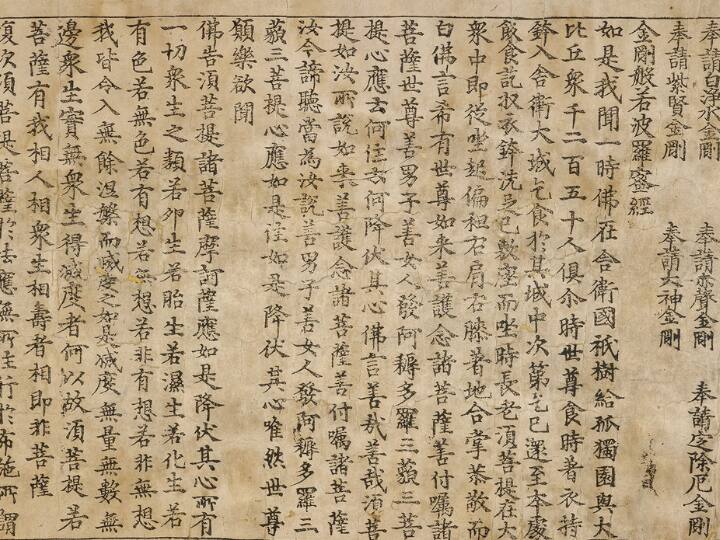 奉請白淨水金剛 奉請赤聲金剛 奉請定除厄金剛
奉請紫賢金剛 奉請大神金剛
金剛般若波羅蜜經
如是我聞一時佛在舍衛國祇樹給孤獨園與大
比丘衆千二百五十人俱尒時世尊食時著衣持
鉢入舍衛大城乞食於其城中次第乞已還至本處
飯食訖収衣鉢洗足已敷座而坐時長老湏菩提在大
衆中即從坐起偏袒右肩右膝著地合掌恭敬而
白佛言希有世尊如来善護念諸菩薩善付囑諸
菩薩世尊善男子善女人發阿耨多羅三藐三菩
提心應云何住云何降伏其心佛言善哉善哉湏菩
提如汝所說如来善護念諸菩薩善付囑諸菩薩
汝今諦聽當為汝說善男子善女人發阿耨多羅三
藐三菩提心應如是住如是降伏其心唯然世尊
願樂欲聞
佛告湏菩提諸菩薩摩訶薩應如是降伏其心所有
一切衆生之類若卵生若胎生若濕生若化生若
有色若無色若有想若無想若非有想若非無想
我皆令入無餘涅槃而滅度之如是滅度無量無數無
邊衆生實無衆生得滅度者何以故湏菩提若
菩薩有我相人相衆生相壽者相即非菩薩
復次湏菩提菩薩於法應無所住行於布施所謂